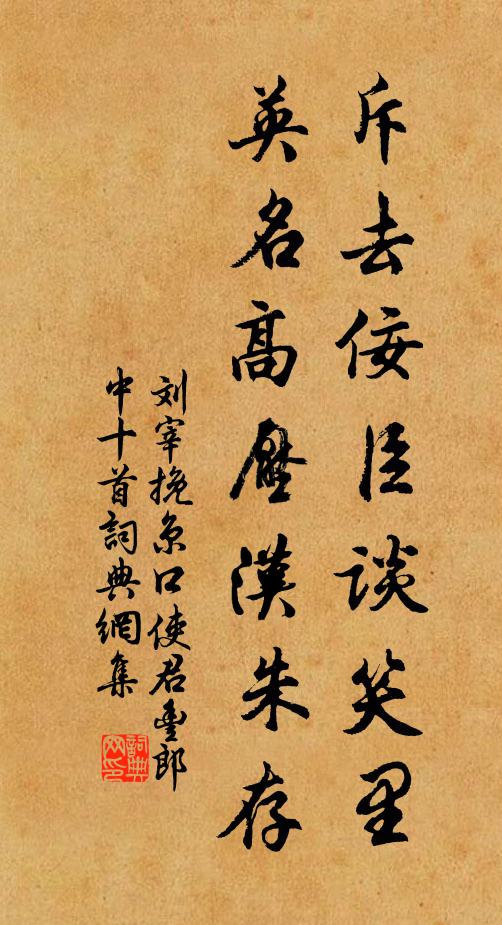 斥去佞臣谈笑里
英名高压漢朱存
刘宰挽京口使君豊郎
中十首詞典網集
詞典
网印